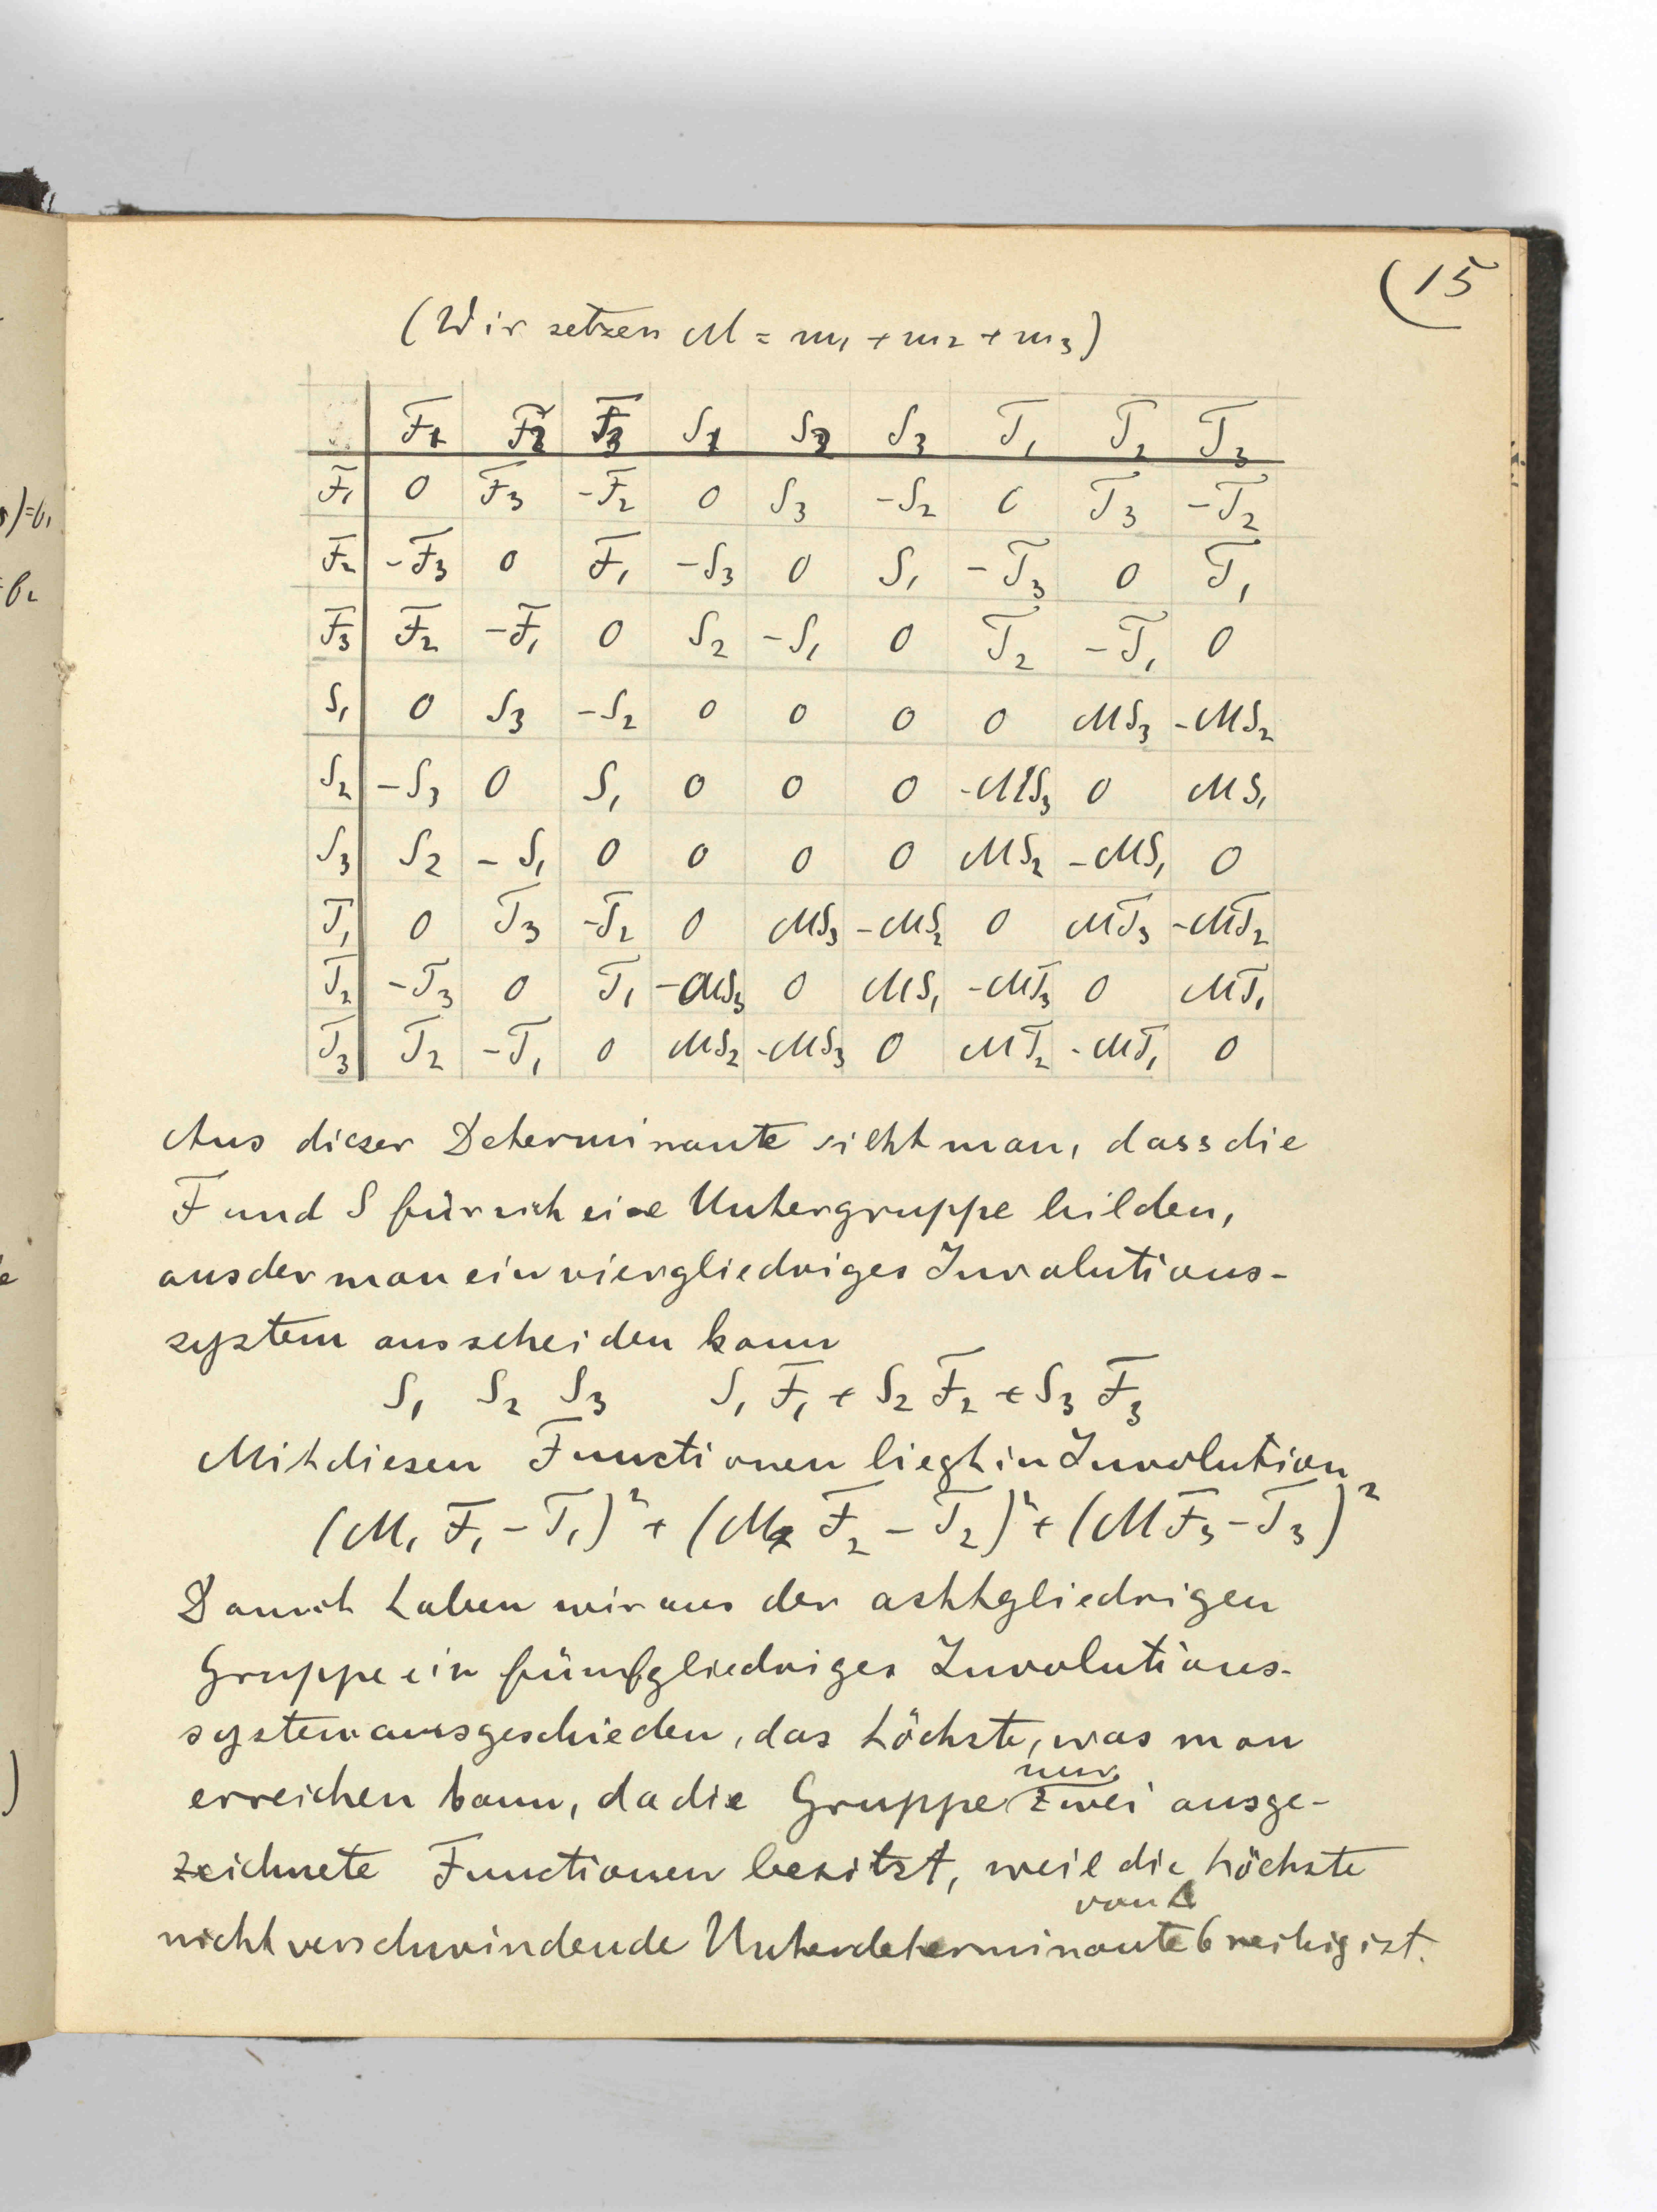 (15
(Wir setzen M = m₁ + m₂ + m₃)
F₁ F₂ F₃ S₁ S₂ S₃ T₁ T₂ T₃
F₁ 0 F₃ -F₂ 0 S₃ -S₂ 0 T₃ -T₂
F₂ -F₃ 0 F₁ -S₃ 0 S₁ -T₃ 0 T₁
F₃ F₂ -F₁ 0 S₂ -S₁ 0 T₂ -T₁ 0
S₁ 0 S₃ -S₂ 0 0 0 0 MS₃ -MS₂
S₂ -S₃ 0 S₁ 0 0 0 -MS₃ 0 MS₁
S₃ S₂ -S₁ 0 0 0 0 MS₂ -MS₁ 0
T₁ 0 T₃ -T₂ 0 MS₃ -MS₂ 0 MT₃ -MT₂
T₂ -T₃ 0 T₁ -MS₃ 0 MS₁ -MT₃ 0 MT₁
T₃ T₂ -T₁ 0 MS₂ -MS₃ 0 MT₂ -MT₁ 0
Aus dieser Determinante sieht man, dass die
F und S für sich eine Untergruppe bilden,
aus der man ein viergliedriges Involutions-
system ausscheiden kann
S₁ S₂ S₃ S₁F₁ + S₂F₂ + S₃F₃
Mit diesen Functionen liegt in Involution
(M₁F₁ - T₁)² + (M₂F₂ - T₂)² + (MF₃ - T₃)²
Damit haben wir aus der achtgliedrigen
Gruppe ein fünfgliedriges Involutions-
system ausgeschieden, das höchste, was man
erreichen kann, da die Gruppe nur zwei ausge-
zeichnete Functionen besitzt, weil die höchste
nicht verschwindende Unterdeterminante von Δ 6 reihig ist.